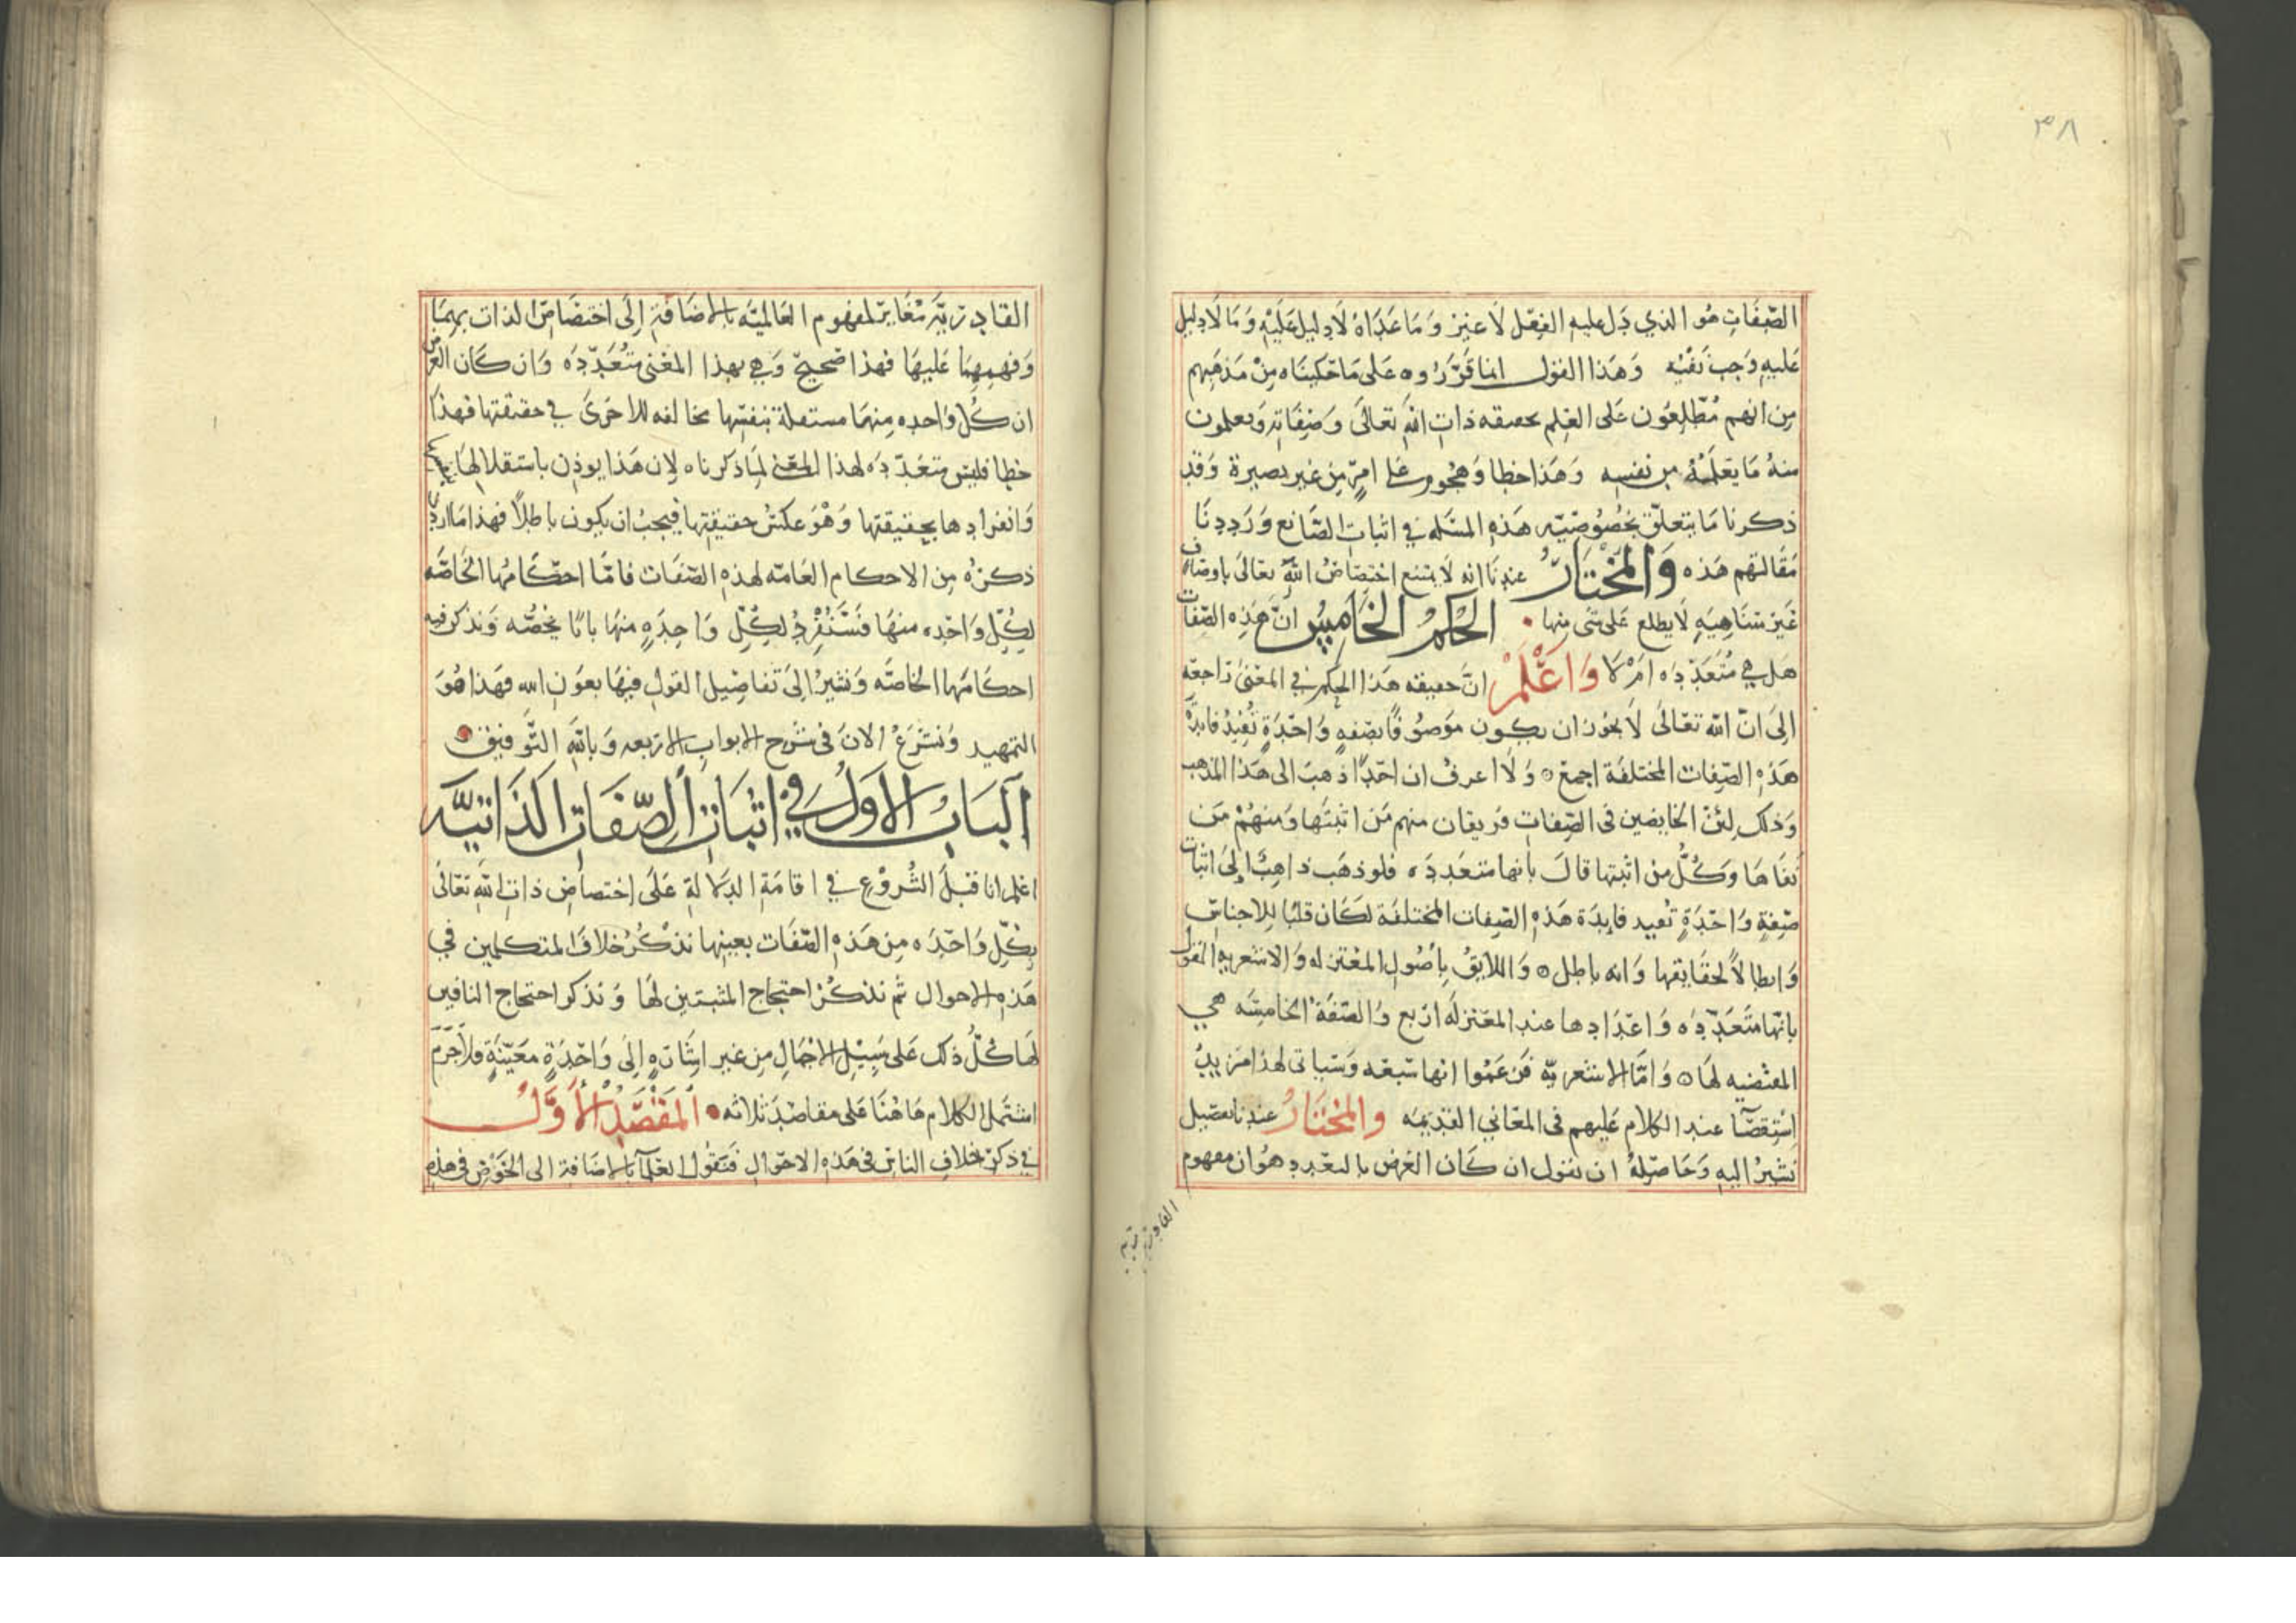 ٣٨
الصّفَاتِ هُو الذي دَل عليهِ الفِعْل لَا غير وَمَا عَدَاهُ لَا دليل عَلَيْهِ وَمَا لَا دليل
عَليهِ وَجبَ نَفْيُه وَهَذا القول انما قَرَّرُوه عَلى مَا حَكينَاه مِنْ مَذهَبِهم
مِن انهم مُطّلِعُون عَلى العِلم بحقيقه ذات الله تعَالى وَصفَاتِه وَيعلمون
منهُ مَا يَعلَمْهُ من نفسِه وَهَذا خطا وَهُجُوم على امرٍ مِن غير بَصيرة وَقد
ذكرنا مَا يتعلّق بخصُوصيّه هَذه المسَله في اثبات الصّانع وَرَدَدنَا
مَقَالتهم هَذه وَالمُختَارُ عندنَا انه لَا يمتنع اختِصَاصُ الله تعَالى باوصَاف
غَير متنَاهِيَهِ لَا يطلع عَلى شي مِنها الحُكْمُ الخَامِسُ انّ هَذِه الصّفات
هَل هي مُتَعَدّدَه امْ لَا وَاعْلَمْ انّ حقيقه هَذا الحكم في المعنىَ رَاجعَه
اِلىَ انّ الله تعَالىَ لَا يجوز ان يكون مَوصُوفًا بصفهٍ وَاحَدَةٍ تُفِيدُ فايدَة
هَذهِ الصّفات المختلفَة اجمع وَلا اعرفُ ان احَدًا ذهبَ الى هَذا المذهب
وَذلك لِئنّ الخايضين فى الصّفاتِ فريقان منهم مَن اثبتَها وَمنهُمْ مَن
نفَاهَا وَكُلُّ مِن اثبتها قالَ بانها متعَددَه فلو ذهَب ذاهِبٌ اِلىَ اثبات
صِفةٍ وَاحَدَةٍ تفيد فايدَة هَذهِ الصّفات المختلفَة لكَان قلبًا للاجناس
وَابطالاً لحقَايقها وَانه باطل وَاللايقُ بأصُول المعتزله وَالاشعريه القول
بانّها متَعَدّدَه وَاعْدَادها عند المعتزلَه ارْبع وَالصّفَة الخامسَه هي
المقتضيه لهَا وَامّا الاشعريّه فَزَعَمُوا انها سَبعَه وَسَياتى لهذا مزيدُ
استقصَآ عند الكلام عَليهم فى المعَاني القديمَه والمُختَارُ عندنا تفصيل
نشيرُ اليه وَحَاصِلهُ ان نقول ان كَان الغرض بالتعَدد هُو ان مفهوم
القادريّه
القَادريّه مُغَايرٌ لمفهوم العَالميّه بالاضَافَةِ اِلَى اختصَاصْ الذات بِهِمَا
وَفهمهما عَليهَا فهذا صَحيحٌ وَهي بهذا المعْنى متُعَدّدَه وَان كَان الغرض
ان كُل وَاحده مِنهمَا مستقلة بنفسِها مخالفه للاخرَى في حقيقتها فهذا
خطا فليسَ متعَدّدَه لهذا المعنى لِمَا ذكرناه لان هَذا يوذن باستقلالهَا
وَانفرادها بحقيقتها وَهْوَ عكسُ حقيقتِها فيجبُ ان يكون بَاطِلاً فهذا مَا اردنا
ذكرُه مِن الاحكام العَامّه لهذهِ الصّفَات فامّا احكَامُها الخَاصّه
لكُلِّ وَاحَده منهَا فسَنُفْرِدُ لكلِّ وَاحِدَهٍ منهَا بابًا يخصُّه وَنذكر فيه
احكَامَها الخاصَّه وَنشيرُ الىَ تفاصِيل القول فيهَا بعَون الله فهَذا هُوَ
التمهيد وَنشرَعُ الانَ فى شَرح الابواب الاربعه وَبالله التّوفيق
اَلبَابُ الاَولُ في اثبَات الصّفَات الذاتيَّه
اعلم انا قبلَ الشُروْعِ في اقامَةِ الدلالةِ عَلىَ اختصاص ذاتِ الله تعَالى
بكلِّ وَاحَدَه مِن هَذهِ الصّفَات بعينِها نذكُرُ خلافَ المتكلمين في
هَذِه الاحوال ثم نذكُرُ احتجاج المثبتين لهَا وَنذكر احتجاج النافين
لهَا كلُّ ذلك عَلى سَبيْلِ الاجْمَالِ مِن غير اشَارَهٍ اِلىَ وَاحَدَةٍ معَيّنَةٍ فلاَجَرَمَ
اشتَمل الكلام هَاهُنَا عَلى مقاصدَ ثلاثه اَلمَقْصَدُ الأَوَّلُ
في ذكر خلافِ الناس فى هَذهِ الاحوَالِ فَنَقُول العُلمَآ بالاضَافة الى الخَوْض فى هذهِ